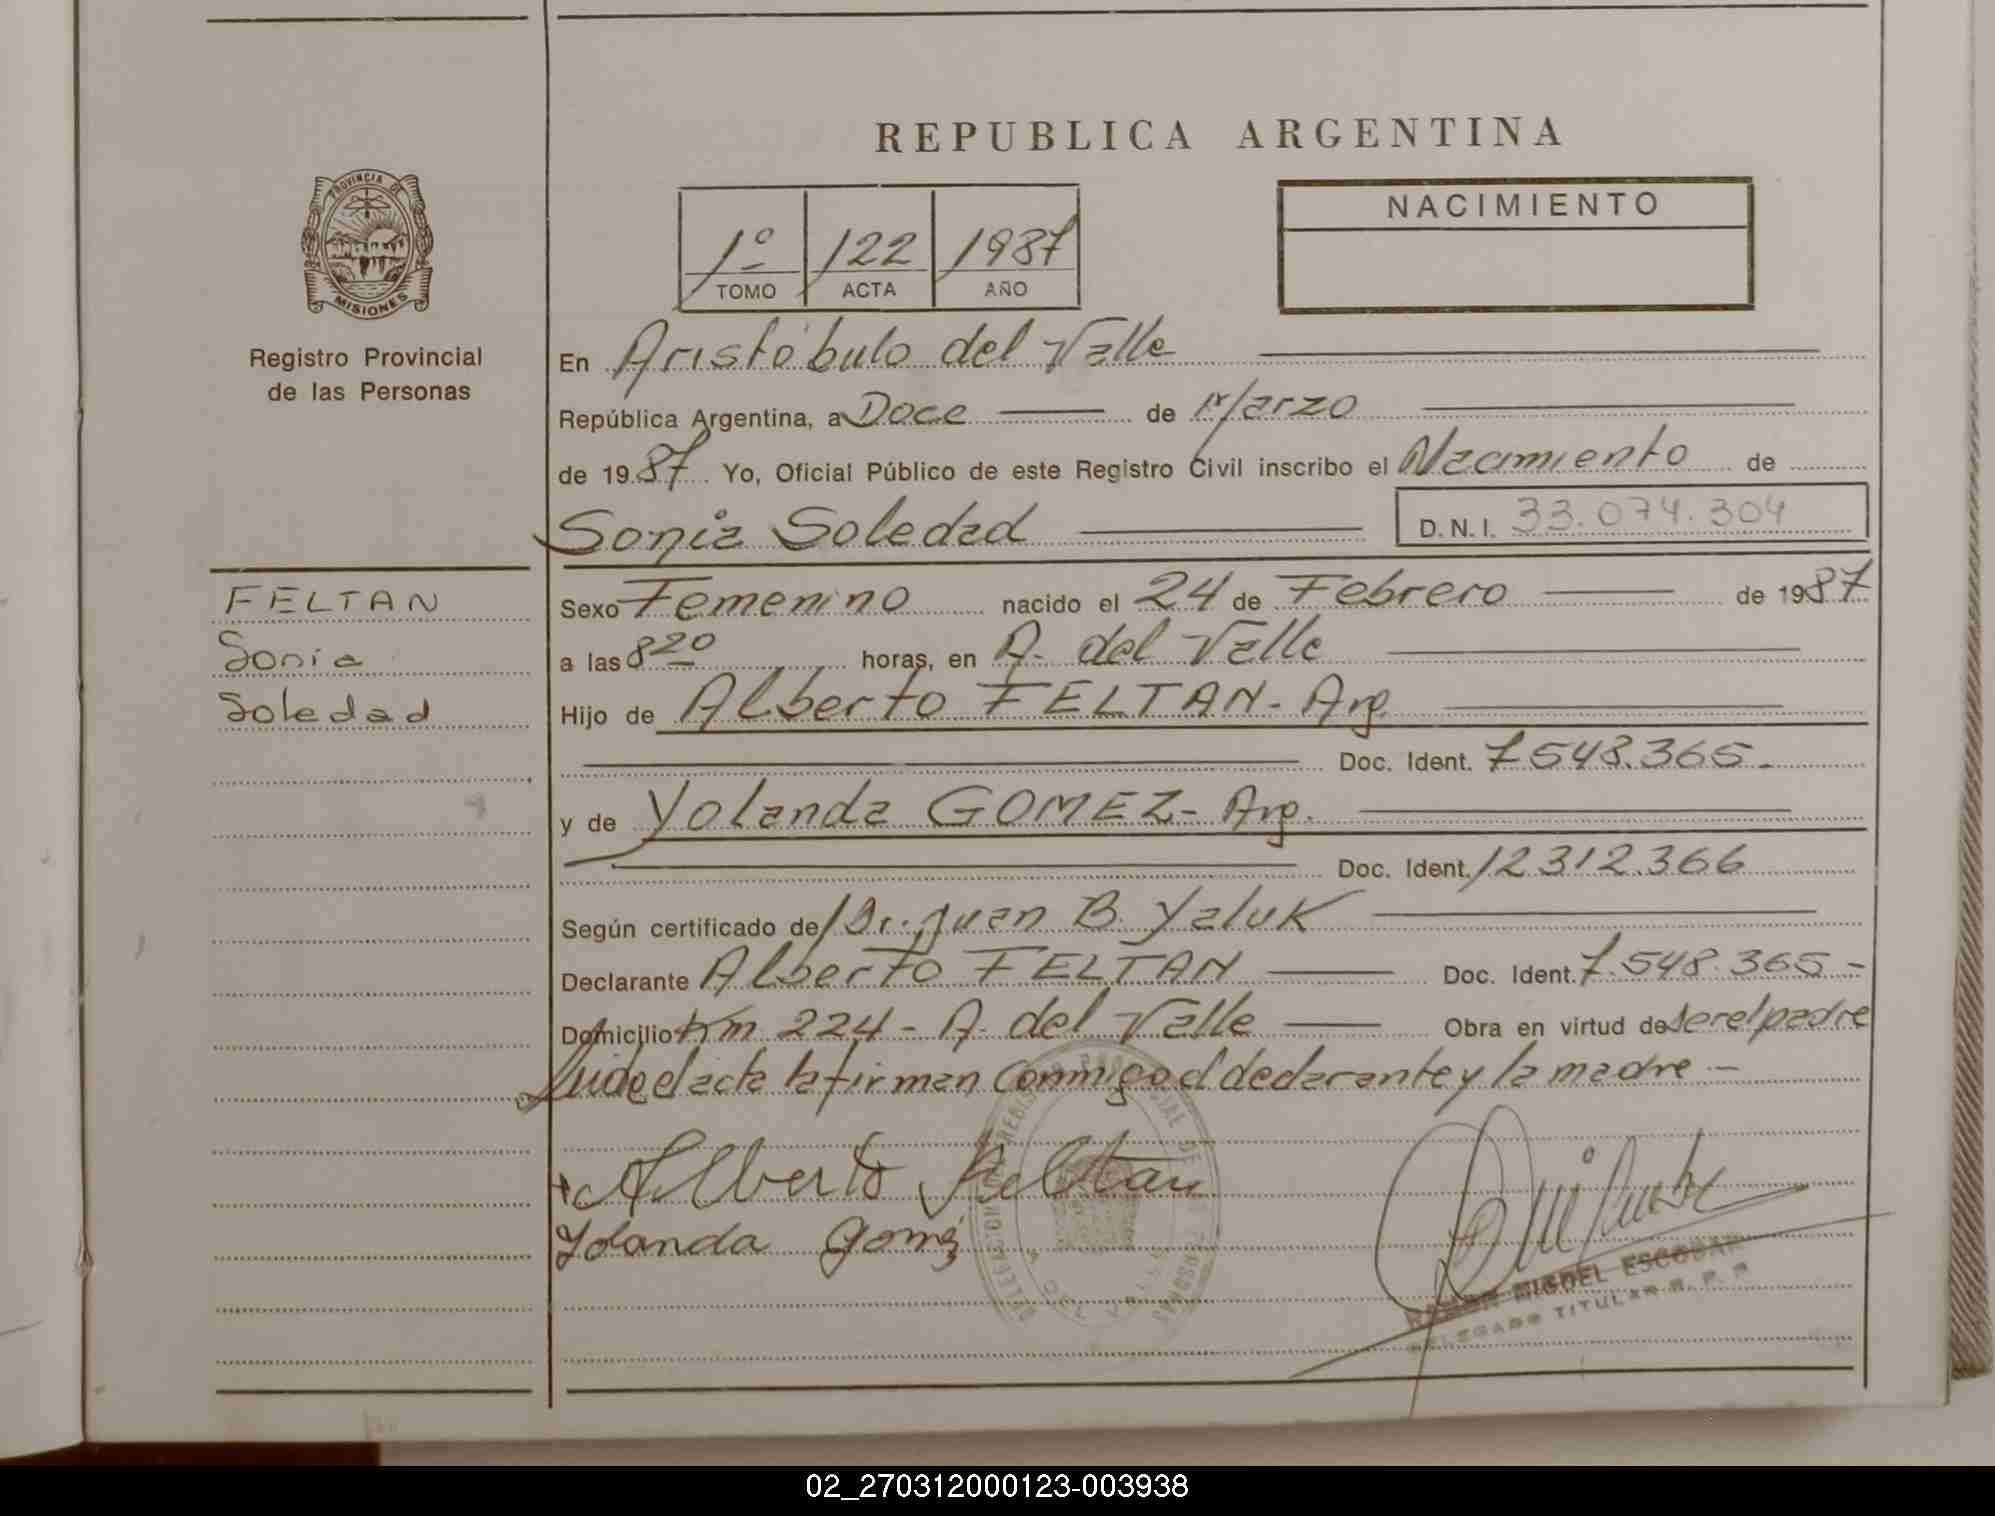 REPUBLICA ARGENTINA
PROVINCIA DE
MISIONES
Registro Provincial
de las Personas
1º 122 1987
TOMO ACTA AÑO
NACIMIENTO
En Aristóbulo del Valle
República Argentina, a Doce de Marzo
de 1987 Yo, Oficial Público de este Registro Civil inscribo el Nacimiento de
Sonia Soledad D.N.I. 33.074.304
FELTAN
Sonia
Soledad
Sexo Femenino nacido el 24 de Febrero de 1987
a las 8 20 horas, en A. del Valle
Hijo de Alberto FELTAN - Arg.
Doc. Ident. 7.548.365.
y de Yolanda GOMEZ - Arg.
Doc. Ident. 12.312.366
Según certificado de Dr. Juan B. Yaluk
Declarante Alberto FELTAN Doc. Ident. 7.548.365 -
Domicilio Km 224 - A. del Valle Obra en virtud de ser el padre
Leída el acta la firman conmigo el declarante y la madre -
Alberto Feltan
Yolanda Gomez
RAMON MIGUEL ESCOBAR
DELEGADO TITULAR R. P. P.
02_270312000123-003938